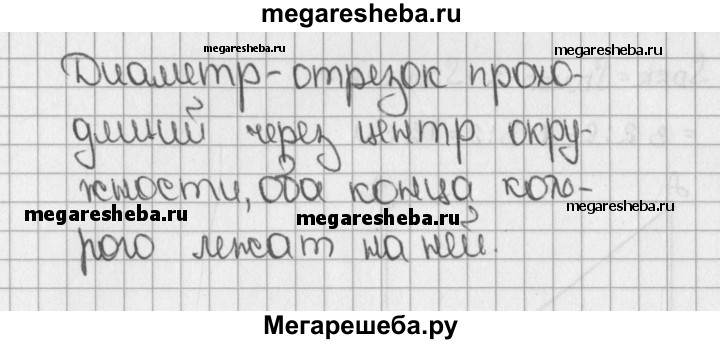 megaresheba.ru
megaresheba.ru
megaresheba.ru
Диаметр - отрезок прохо-
дящий через центр окру-
жности, оба конца кото-
megaresheba.ru
megaresheba.ru
megaresheba.ru
рого лежат на ней.
Мегарешеба.ру